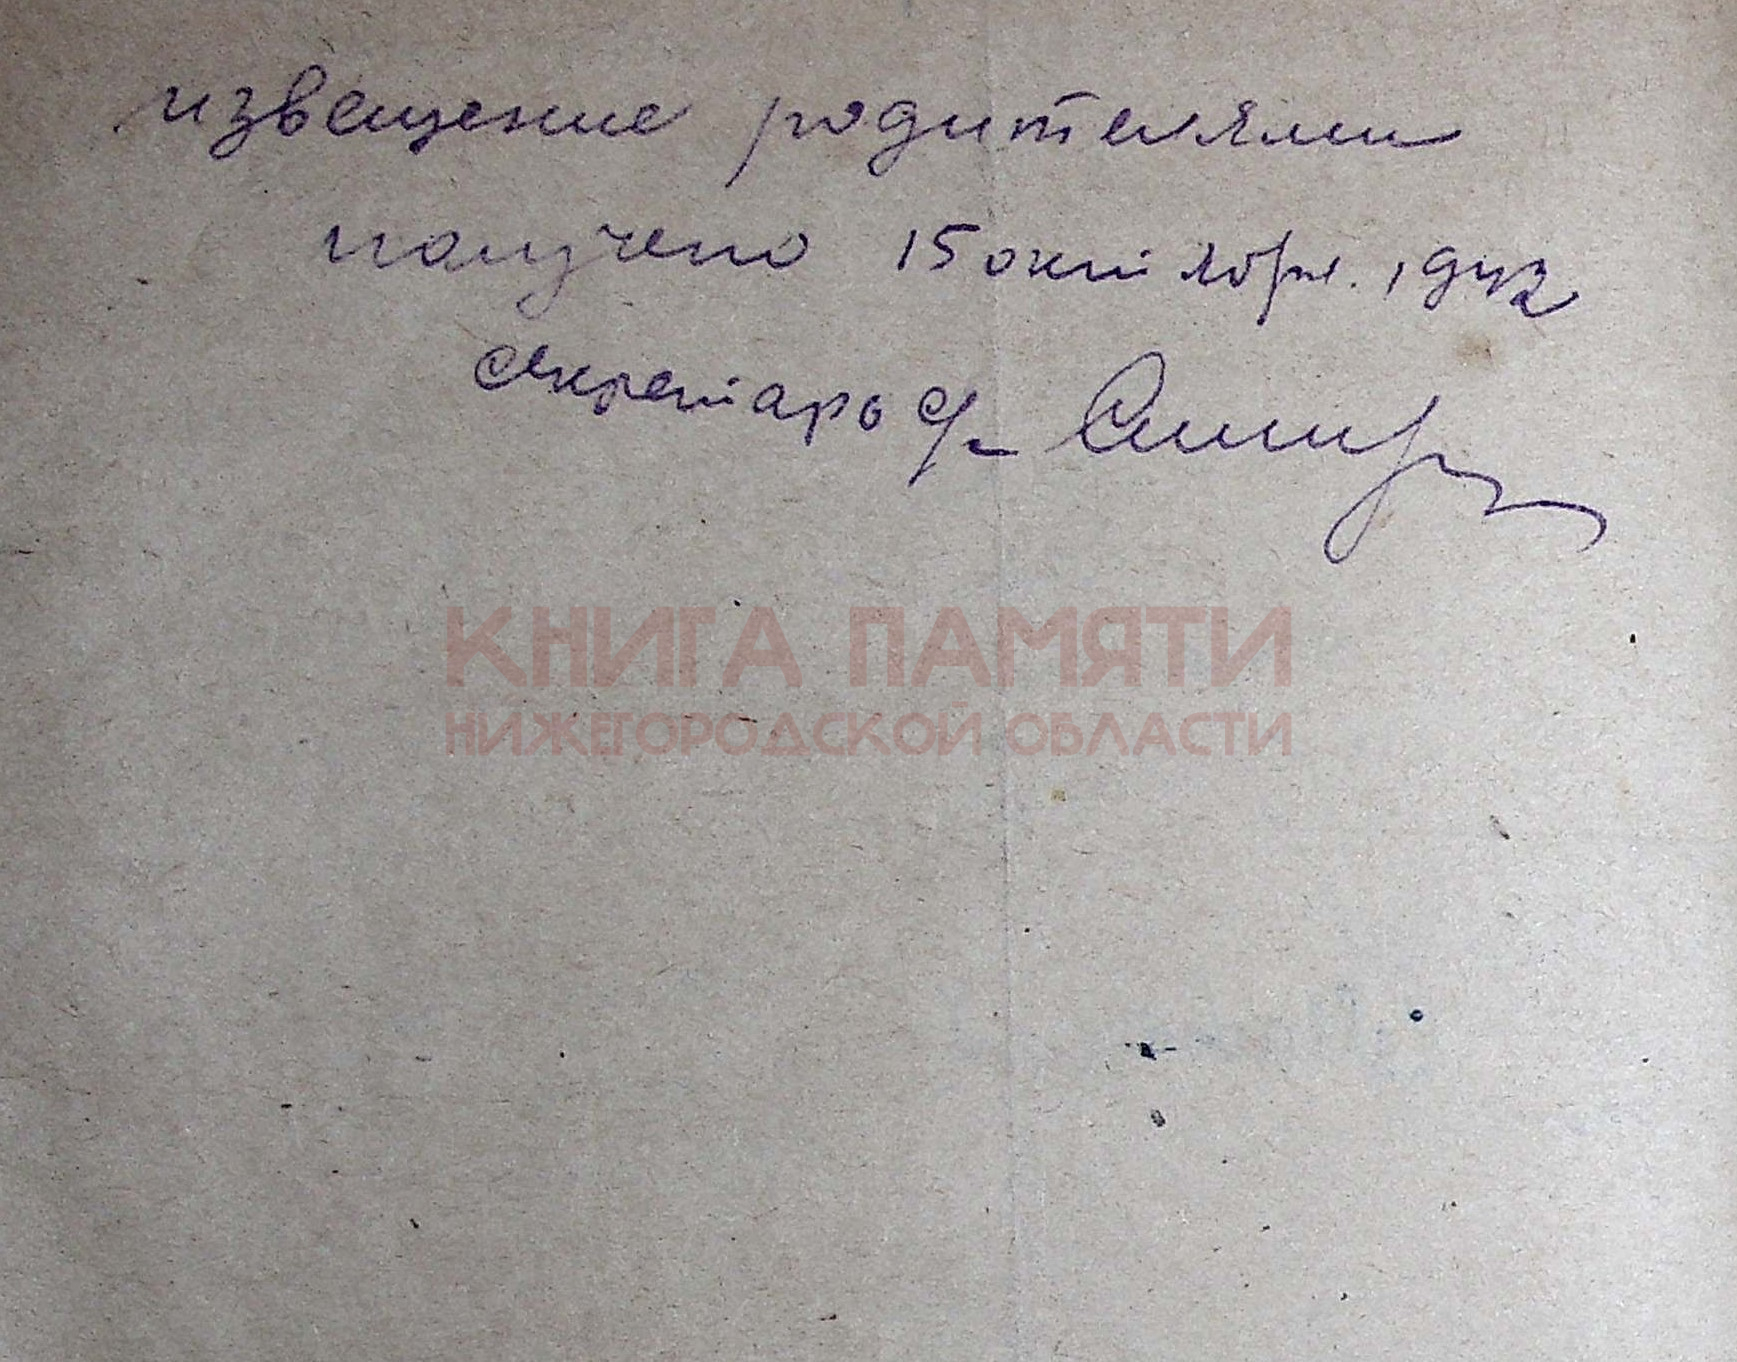 извещение родителями
получено 15 октября. 1942
секретарь с/с
КНИГА ПАМЯТИ
НИЖЕГОРОДСКОЙ ОБЛАСТИ